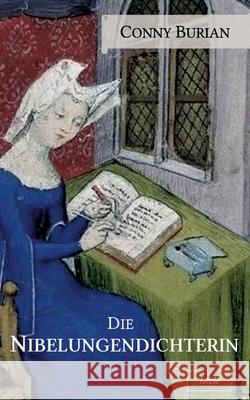 CONNY BURIAN
DIE
NIBELUNGENDICHTERIN